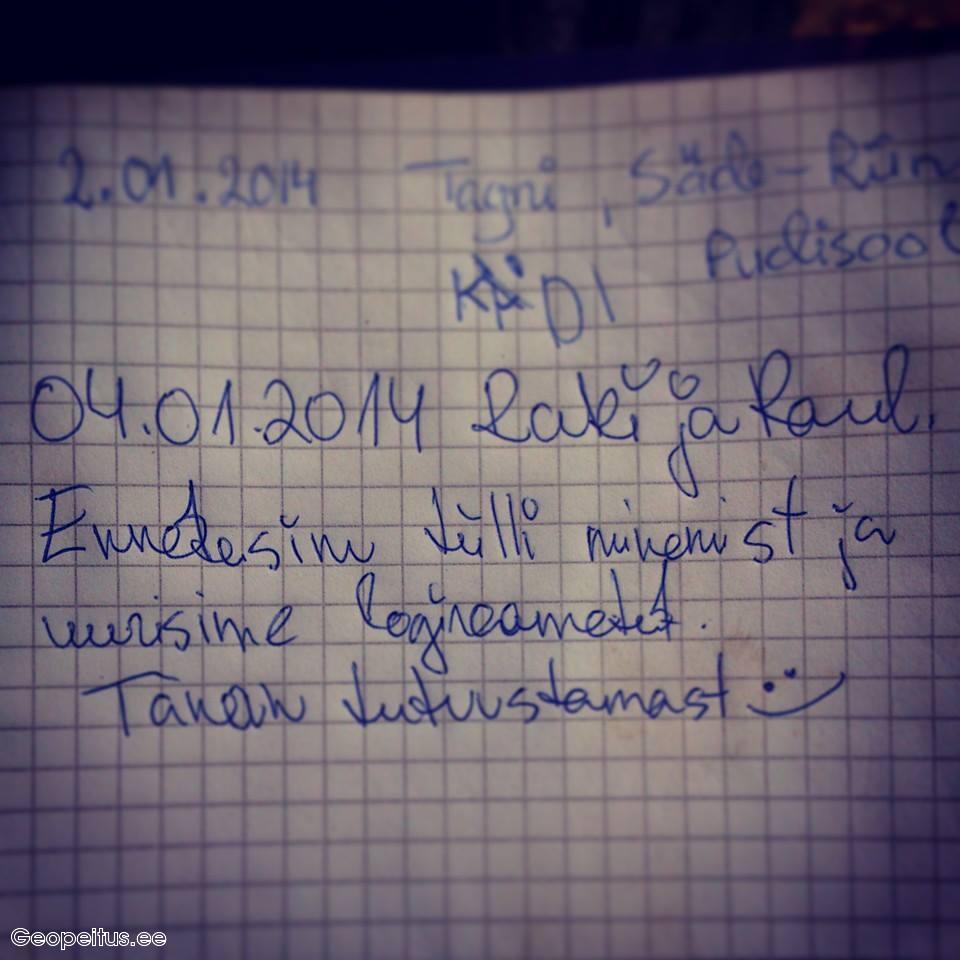 2.01.2014 Tagni, Säde-Rün
Pudisool
04.01.2014 Raki ja Raul.
Ennetasim tülli minemist ja
uurisime logiraamatut.
Tänan tutvustamast
Geopeitus.ee